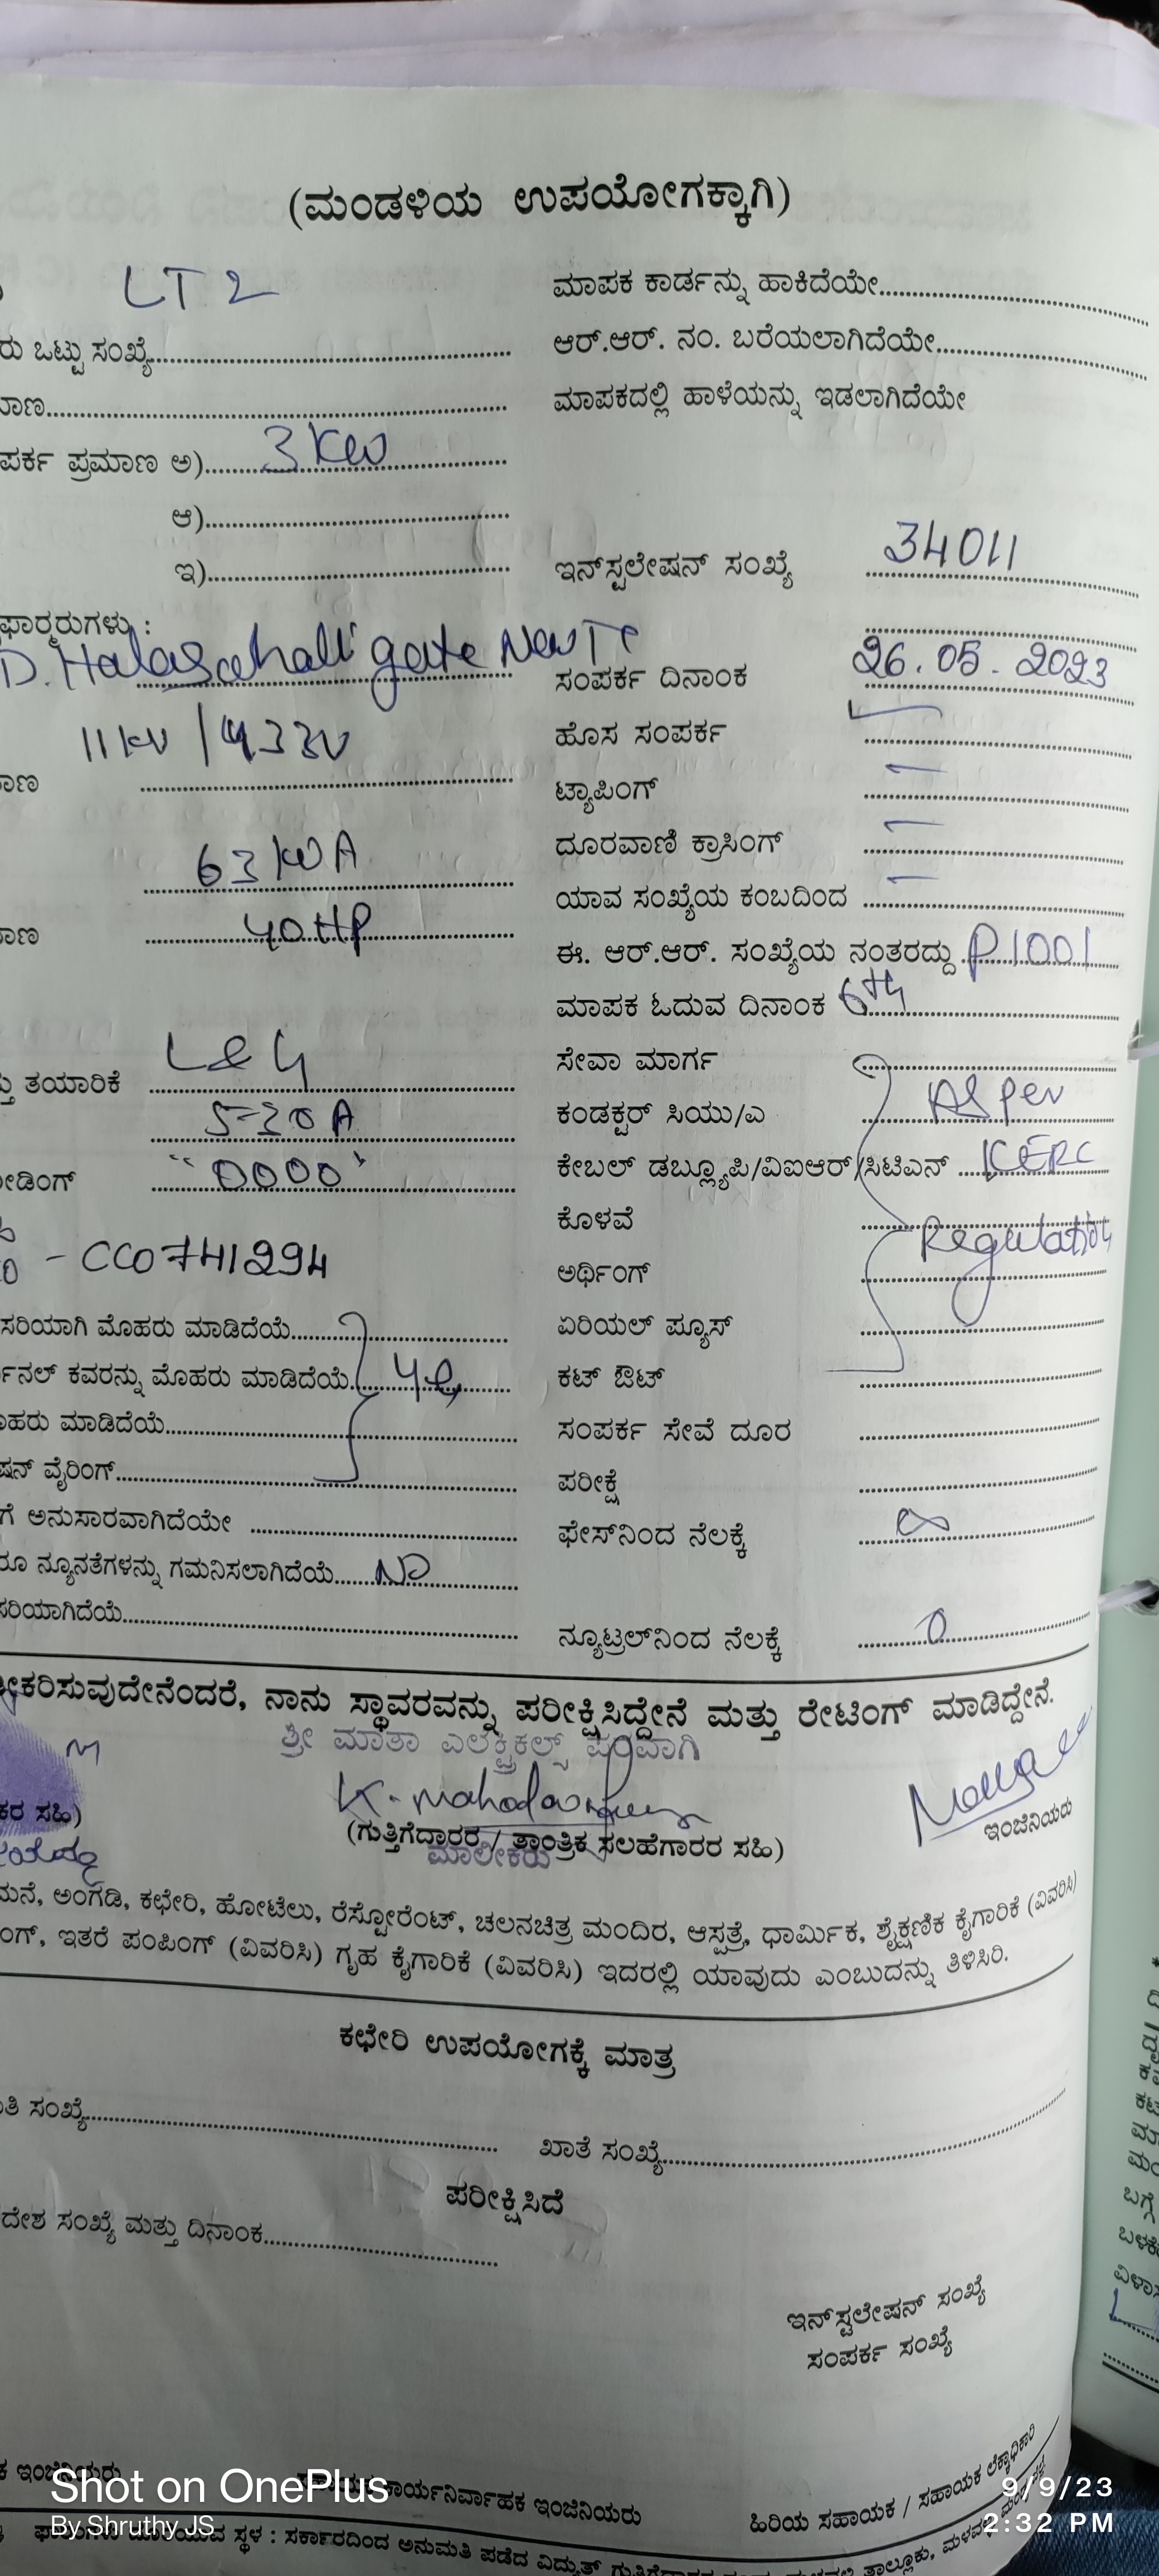 (ಮಂಡಳಿಯ ಉಪಯೋಗಕ್ಕಾಗಿ)
LT 2
ರು ಒಟ್ಟು ಸಂಖ್ಯೆ
ಪರ್ಕ ಪ್ರಮಾಣ ಅ) 3 KW
ಆ)
ಇ)
ಫಾರ್ಮರುಗಳು :
D. Halasahalli gate New TC
11 kv / 433v
63 KVA
40 HP
L&G
ತು ತಯಾರಿಕೆ
5-30 A
ೀಡಿಂಗ್ "0000"
- CC0741294
ಸರಿಯಾಗಿ ಮೊಹರು ಮಾಡಿದೆಯೆ
ರ್ಮಿನಲ್ ಕವರನ್ನು ಮೊಹರು ಮಾಡಿದೆಯೆ
ೊಹರು ಮಾಡಿದೆಯೆ
ಷನ್ ವೈರಿಂಗ್
ಗೆ ಅನುಸಾರವಾಗಿದೆಯೇ
ರೂ ನ್ಯೂನತೆಗಳನ್ನು ಗಮನಿಸಲಾಗಿದೆಯೆ NO
ಸರಿಯಾಗಿದೆಯೆ
ಮಾಪಕ ಕಾರ್ಡನ್ನು ಹಾಕಿದೆಯೇ
ಆರ್.ಆರ್. ನಂ. ಬರೆಯಲಾಗಿದೆಯೇ
ಮಾಪಕದಲ್ಲಿ ಹಾಳೆಯನ್ನು ಇಡಲಾಗಿದೆಯೇ
ಇನ್‌ಸ್ಟಲೇಷನ್ ಸಂಖ್ಯೆ 34011
ಸಂಪರ್ಕ ದಿನಾಂಕ 26.05.2023
ಹೊಸ ಸಂಪರ್ಕ
ಟ್ಯಾಪಿಂಗ್
ದೂರವಾಣಿ ಕ್ರಾಸಿಂಗ್
ಯಾವ ಸಂಖ್ಯೆಯ ಕಂಬದಿಂದ
ಈ. ಆರ್.ಆರ್. ಸಂಖ್ಯೆಯ ನಂತರದ್ದು P1001
ಮಾಪಕ ಓದುವ ದಿನಾಂಕ 6th
ಸೇವಾ ಮಾರ್ಗ
ಕಂಡಕ್ಟರ್ ಸಿಯು/ಎ As per
ಕೇಬಲ್ ಡಬ್ಲ್ಯೂಪಿ/ವಿಐಆರ್/ಸಿಟಿಎಸ್ KERC
ಕೊಳವೆ Regulation
ಅರ್ಥಿಂಗ್
ಏರಿಯಲ್ ಫ್ಯೂಸ್
ಕಟ್ ಔಟ್
ಸಂಪರ್ಕ ಸೇವೆ ದೂರ
ಪರೀಕ್ಷೆ
ಫೇಸ್‌ನಿಂದ ನೆಲಕ್ಕೆ ∞
ನ್ಯೂಟ್ರಲ್‌ನಿಂದ ನೆಲಕ್ಕೆ 0
ೀಕರಿಸುವುದೇನೆಂದರೆ, ನಾನು ಸ್ಥಾವರವನ್ನು ಪರೀಕ್ಷಿಸಿದ್ದೇನೆ ಮತ್ತು ರೇಟಿಂಗ್ ಮಾಡಿದ್ದೇನೆ.
ಶ್ರೀ ಮಾತಾ ಎಲೆಕ್ಟ್ರಿಕಲ್ಸ್ ಪರವಾಗಿ
ಕರ ಸಹಿ)
(ಗುತ್ತಿಗೆದಾರರ / ತಾಂತ್ರಿಕ ಸಲಹೆಗಾರರ ಸಹಿ)
ಇಂಜಿನಿಯರು
ಮಾಲೀಕರು
ಮನೆ, ಅಂಗಡಿ, ಕಛೇರಿ, ಹೋಟೆಲು, ರೆಸ್ಟೋರೆಂಟ್, ಚಲನಚಿತ್ರ ಮಂದಿರ, ಆಸ್ಪತ್ರೆ, ಧಾರ್ಮಿಕ, ಶೈಕ್ಷಣಿಕ ಕೈಗಾರಿಕೆ (ವಿವರಿಸಿ)
ಂಗ್, ಇತರೆ ಪಂಪಿಂಗ್ (ವಿವರಿಸಿ) ಗೃಹ ಕೈಗಾರಿಕೆ (ವಿವರಿಸಿ) ಇದರಲ್ಲಿ ಯಾವುದು ಎಂಬುದನ್ನು ತಿಳಿಸಿರಿ.
ಕಛೇರಿ ಉಪಯೋಗಕ್ಕೆ ಮಾತ್ರ
ತಿ ಸಂಖ್ಯೆ
ಖಾತೆ ಸಂಖ್ಯೆ
ಪರೀಕ್ಷಿಸಿದೆ
ದೇಶ ಸಂಖ್ಯೆ ಮತ್ತು ದಿನಾಂಕ
ಇನ್‌ಸ್ಟಲೇಷನ್ ಸಂಖ್ಯೆ
ಸಂಪರ್ಕ ಸಂಖ್ಯೆ
ಇಂಜಿನಿಯರು
ಕಾರ್ಯನಿರ್ವಾಹಕ ಇಂಜಿನಿಯರು
ಹಿರಿಯ ಸಹಾಯಕ / ಸಹಾಯಕ ಲೆಕ್ಕಾಧಿಕಾರಿ
ಸ್ಥಳ : ಸರ್ಕಾರದಿಂದ ಅನುಮತಿ ಪಡೆದ ವಿದ್ಯುತ್
Shot on OnePlus
By Shruthy JS
9/9/23
2:32 PM